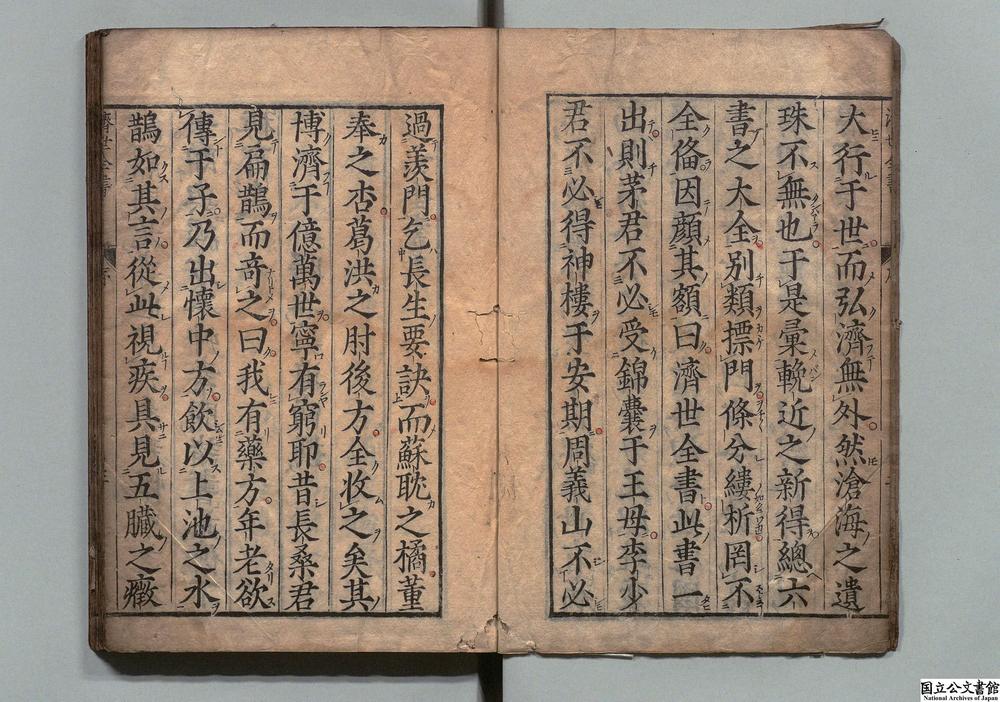 大行于世而弘濟無外然滄海之遺
珠不無也于是彙輓近之新得總六
書之大全別類摽門條分縷析罔不
全俻因顔其額曰濟世全書此書一
出則茅君不必受錦囊于王母李少
君不必得神樓于安期周義山不必
過羨門乞長生要訣而蘇耽之橘董
奉之杏葛洪之肘後方全收之矣其
博濟于億萬世寧有窮耶昔長桑君
見扁鵲而竒之曰我有藥方年老欲
傳于子乃出懷中方飲以上池之水
鵲如其言從此視疾具見五臟之癥
国立公文書館
National Archives of Japan